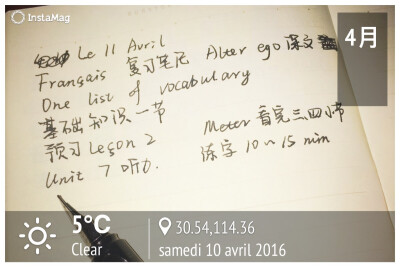 InstaMag
4月
Le 11 Avril
Français 复习笔记 Alter ego 课文
One list of vocabulary
基础知识一节
预习 Leçon 2
Unit 7 听力.
Meter 看完三四小节
练字 10~15 min
5°C
Clear
30.54,114.36
samedi 10 avril 2016